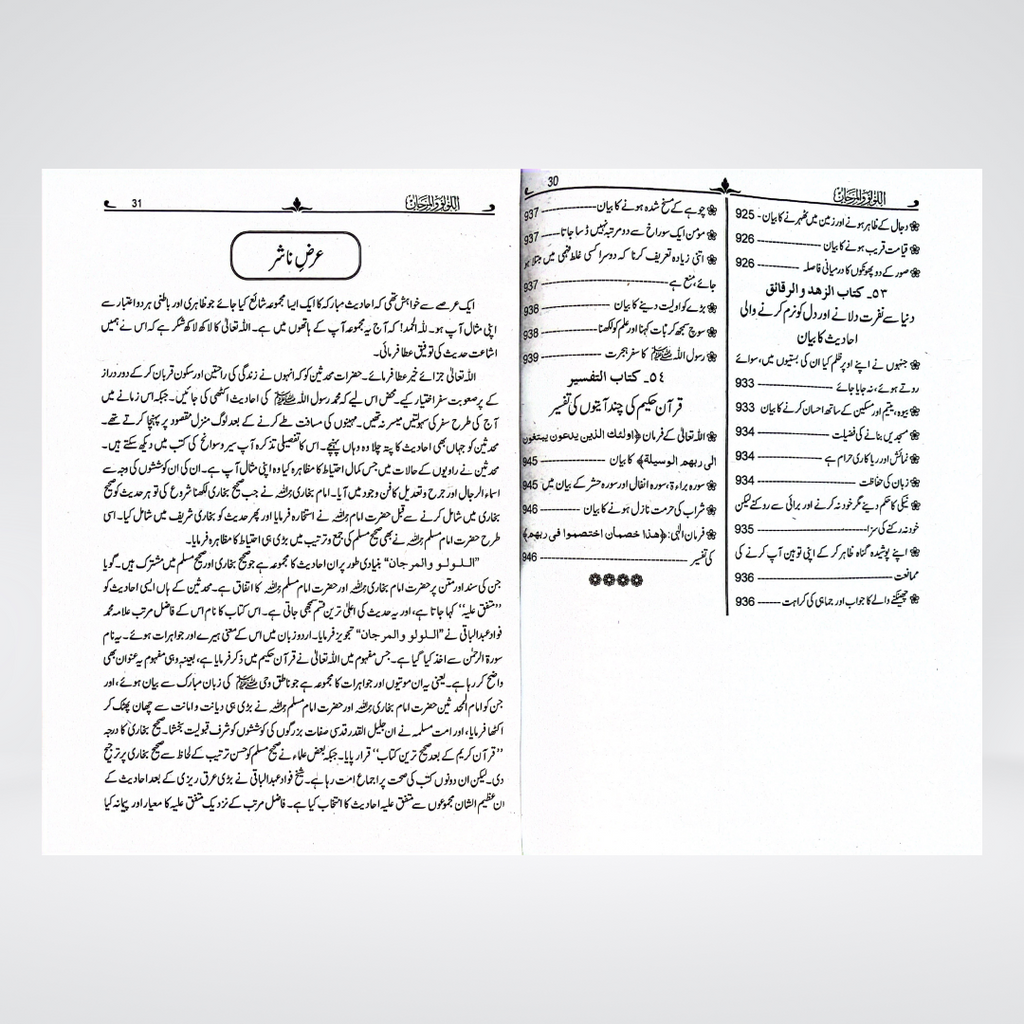 30
اللؤلؤ والمرجان
❀ دجال کے ظاہر ہونے اور زمین میں ٹھہرنے کا بیان - 925
❀ قیامت قریب ہونے کا بیان ---------- 926
❀ صور کے دو پھونکوں کا درمیانی فاصلہ ------ 926
۵۳۔ کتاب الزهد والرقائق
دنیا سے نفرت دلانے اور دل کو نرم کرنے والی
احادیث کا بیان
❀ جنہوں نے اپنے اوپر ظلم کیا ان کی بستیوں میں، سوائے
روتے ہوئے، نہ جایا جائے ---------- 933
❀ بیوہ، یتیم اور مسکین کے ساتھ احسان کرنے کا بیان 933
❀ مسجدیں بنانے کی فضیلت ---------- 934
❀ نمائش اور ریا کاری حرام ہے ---------- 934
❀ زبان کی حفاظت ---------- 934
❀ نیکی کا حکم دینے مگر خود نہ کرنے اور برائی سے روکنے لیکن
خود نہ رکنے کی سزا ---------- 935
❀ اپنے پوشیدہ گناہ ظاہر کر کے اپنی توہین آپ کرنے کی
ممانعت ---------- 936
❀ چھینکنے والے کا جواب اور جماہی کی کراہت ---- 936
❀ چوہے کے مسخ شدہ ہونے کا بیان ---------- 937
❀ مؤمن ایک سوراخ سے دو مرتبہ نہیں ڈسا جاتا ---- 937
❀ اتنی زیادہ تعریف کرنا کہ دوسرا کسی غلط فہمی میں مبتلا ہو
جائے، منع ہے ---------- 937
❀ بڑے کو اولیت دینے کا بیان ---------- 938
❀ سوچ سمجھ کر بات کہنا اور علم کو لکھنا ------ 938
❀ رسول اللہ ﷺ کا سفر ہجرت ---------- 939
٥٤۔ کتاب التفسير
قرآن حکیم کی چند آیتوں کی تفسیر
❀ اللہ تعالیٰ کے فرمان ﴿اولئك الذين يدعون يبتغون
الى ربهم الوسيلة﴾ کا بیان ------ 945
❀ سورہ براءۃ، سورہ انفال اور سورہ حشر کے بیان میں 945
❀ شراب کی حرمت نازل ہونے کا بیان ------ 946
❀ فرمان الٰہی: ﴿هذا خصمان اختصموا فی ربهم﴾
کی تفسیر ---------- 946
31
اللؤلؤ والمرجان
عرضِ ناشر
ایک عرصے سے خواہش تھی کہ احادیث مبارکہ کا ایک ایسا مجموعہ شائع کیا جائے جو ظاہری اور باطنی ہر دو اعتبار سے
اپنی مثال آپ ہو۔ للہ الحمد! کہ آج یہ مجموعہ آپ کے ہاتھوں میں ہے۔ اللہ تعالیٰ کا لاکھ لاکھ شکر ہے کہ اس نے ہمیں
اشاعت حدیث کی توفیق عطا فرمائی۔
اللہ تعالیٰ جزائے خیر عطا فرمائے۔ حضرات محدثین کو کہ انہوں نے زندگی کی راحتیں اور سکون قربان کر کے دور دراز
کے پر صعوبت سفر اختیار کیے۔ محض اس لیے کہ محمد رسول اللہ ﷺ کی احادیث اکٹھی کی جائیں۔ جبکہ اس زمانے میں
آج کی طرح سفر کی سہولتیں میسر نہ تھیں۔ مہینوں کی مسافت طے کرنے کے بعد لوگ منزل مقصود پر پہنچا کرتے تھے۔
محدثین کو جہاں بھی احادیث کا پتہ چلا وہ وہاں پہنچے۔ اس کا تفصیلی تذکرہ آپ سیر و سوانح کی کتب میں دیکھ سکتے ہیں۔
محدثین نے راویوں کے حالات میں جس کمال احتیاط کا مظاہرہ کیا وہ اپنی مثال آپ ہے۔ ان کی ان کوششوں کی وجہ سے
اسماء الرجال اور جرح و تعدیل کا فن وجود میں آیا۔ امام بخاری رحمہ اللہ نے جب صحیح بخاری لکھنا شروع کی تو ہر حدیث کو صحیح
بخاری میں شامل کرنے سے قبل حضرت امام رحمہ اللہ نے استخارہ فرمایا اور پھر حدیث کو بخاری شریف میں شامل کیا۔ اسی
طرح حضرت امام مسلم رحمہ اللہ نے بھی صحیح مسلم کی جمع و ترتیب میں بڑی ہی احتیاط کا مظاہرہ فرمایا۔
”اللولو والمرجان“ بنیادی طور پر ان احادیث کا مجموعہ ہے جو صحیح بخاری اور صحیح مسلم میں مشترک ہیں۔ گویا
جن کی سند اور متن پر حضرت امام بخاری رحمہ اللہ اور حضرت امام مسلم رحمہ اللہ کا اتفاق ہے۔ محدثین کے ہاں ایسی احادیث کو
”متفق علیہ“ کہا جاتا ہے، اور یہ حدیث کی اعلیٰ ترین قسم سمجھی جاتی ہے۔ اس کتاب کا نام اس کے فاضل مرتب علامہ محمد
فواد عبدالباقی نے ”اللولو والمرجان“ تجویز فرمایا۔ اردو زبان میں اس کے معنی ہیرے اور جواہرات ہوئے۔ یہ نام
سورۃ الرحمٰن سے اخذ کیا گیا ہے۔ جس مفہوم میں اللہ تعالیٰ نے قرآن حکیم میں ذکر فرمایا ہے، بعینہ وہی مفہوم یہ عنوان بھی
واضح کر رہا ہے۔ یعنی یہ ان موتیوں اور جواہرات کا مجموعہ ہے جو ناطق وحی ﷺ کی زبان مبارک سے بیان ہوئے، اور
جن کو امام المحدثین حضرت امام بخاری رحمہ اللہ اور حضرت امام مسلم رحمہ اللہ نے بڑی ہی دیانت و امانت سے چھان پھٹک کر
اکٹھا فرمایا، اور امت مسلمہ نے ان جلیل القدر قدسی صفات بزرگوں کی کوششوں کو شرف قبولیت بخشا۔ صحیح بخاری کا درجہ
”قرآن کریم کے بعد صحیح ترین کتاب“ قرار پایا۔ جبکہ بعض علماء نے صحیح مسلم کو حسن ترتیب کے لحاظ سے صحیح بخاری پر ترجیح
دی۔ لیکن ان دونوں کتب کی صحت پر اجماع امت رہا ہے۔ شیخ فواد عبدالباقی نے بڑی عرق ریزی کے بعد احادیث کے
ان عظیم الشان مجموعوں سے متفق علیہ احادیث کا انتخاب کیا ہے۔ فاضل مرتب کے نزدیک متفق علیہ کا معیار اور پیمانہ کیا